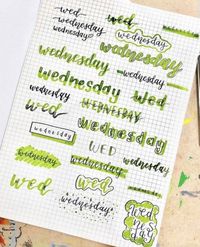 wed
wednesday
wednesday
wed
wednesday
wednesday
wednesday
wednesday
wednesday
wednesday
wed
wednesday
WEDNESDAY
wed
wednesday
wednesday
WED
wednesday
wednesday
wednesday
wed
wed
wednesday
wed
nes
day